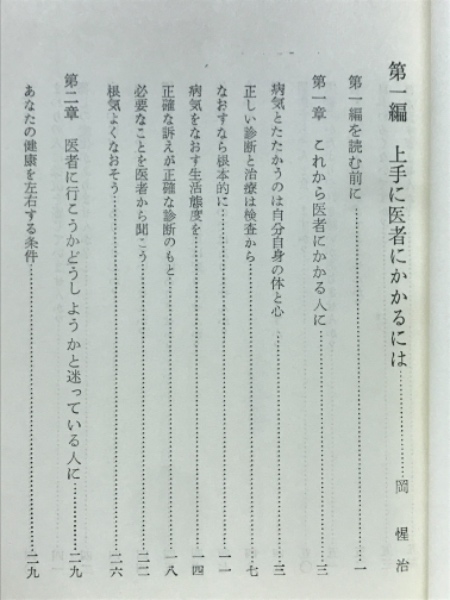 第一編　上手に医者にかかるには……………岡　惺　治
第一編を読む前に……………一
第一章　これから医者にかかる人に……………三
病気とたたかうのは自分自身の体と心……………三
正しい診断と治療は検査から……………七
なおすなら根本的に……………一一
病気をなおす生活態度を……………一四
正確な訴えが正確な診断のもと……………一八
必要なことを医者から聞こう……………二二
根気よくなおそう……………二六
第二章　医者に行こうかどうしようかと迷っている人に……………二九
あなたの健康を左右する条件……………二九